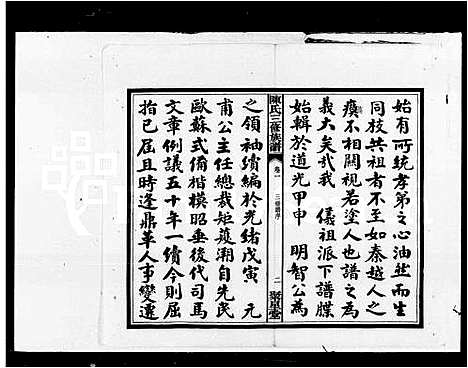 始有所統孝弟之心油然而生
同枝共祖者不至如秦越人之
瘼不相關視若塗人也譜之為
義大矣哉我 儀祖派下譜牒
始輯於道光甲申 明智公為
陳氏三修族譜 卷一 三修譜序 二 聚星堂
之領袖續編於光緒戊寅 元
甫公主任總裁矩蒦溯自先民
歐蘇式備楷模昭垂後代司馬
文章例議五十年一續今則屆
指已屆且時逢鼎革人事變遷